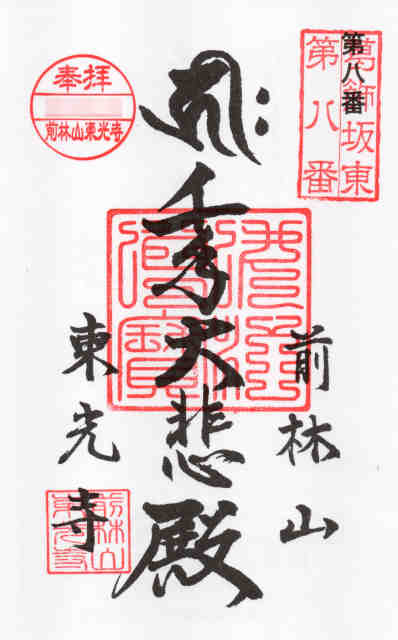 葛飾坂東
第八番
第八番
前林山
千手大悲殿
奉拝
前林山東光寺
東光寺
前林山
東光寺